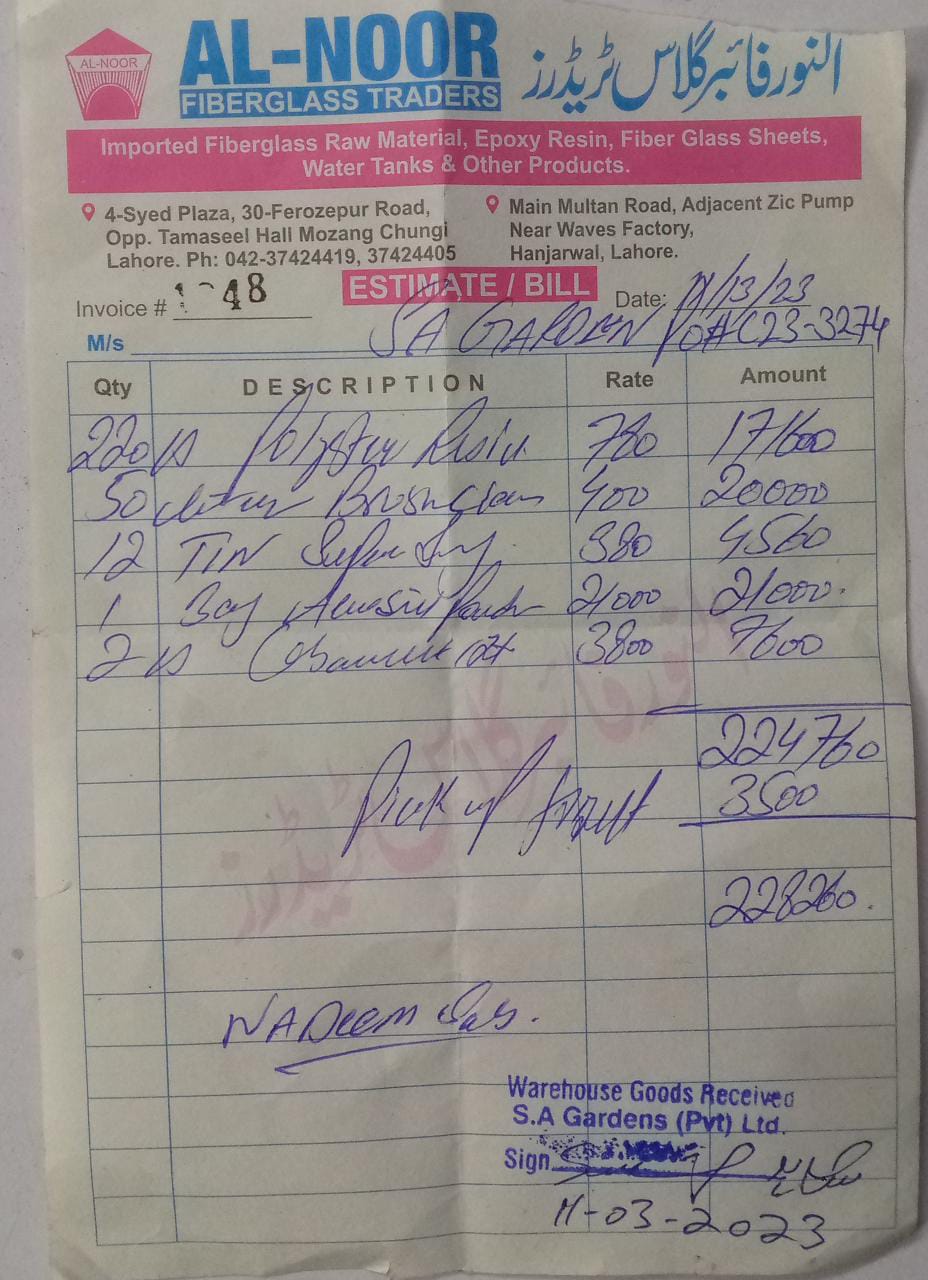 AL-NOOR
AL-NOOR
FIBERGLASS TRADERS
النور فائبر گلاس ٹریڈرز
Imported Fiberglass Raw Material, Epoxy Resin, Fiber Glass Sheets,
Water Tanks & Other Products.
4-Syed Plaza, 30-Ferozepur Road,
Opp. Tamaseel Hall Mozang Chungi
Lahore. Ph: 042-37424419, 37424405
Main Multan Road, Adjacent Zic Pump
Near Waves Factory,
Hanjarwal, Lahore.
ESTIMATE / BILL
Invoice # 48
Date: /13/23
M/s SA GARDEN PO# C23-3274
Qty DESCRIPTION Rate Amount
220 Resin 780 171600
50 400 20000
12 TIN Super 380 4560
1 Bag 21000 21000.
2 3800 7600
224760
Pick up 3500
228260.
NADeem
النور فائبر گلاس ٹریڈرز
Warehouse Goods Received
S.A Gardens (Pvt) Ltd.
Sign
11-03-2023